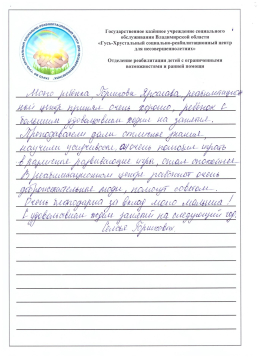 Государственное казённое учреждение социального
обслуживания Владимирской области
«Гусь-Хрустальный социально-реабилитационный центр
для несовершеннолетних»
Отделение реабилитации детей с ограниченными
возможностями и ранней помощи
Моего ребёнка реабилитацион
ный центр принял очень хорошо, ребёнок с
большим удовольствием ходил на занятия.
Преподаватели дали отличные знания,
научили усидчивости, очень полюбил играть
в различные развивающие игры, стал спокойнее.
В реабилитационном центре работают очень
доброжелательные люди, помогут советом.
Очень благодарна за вклад моего малыша!
С удовольствием ждем занятий на следующий год.
Семья